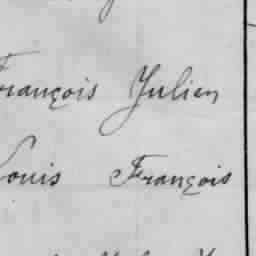 François Julien
Louis François